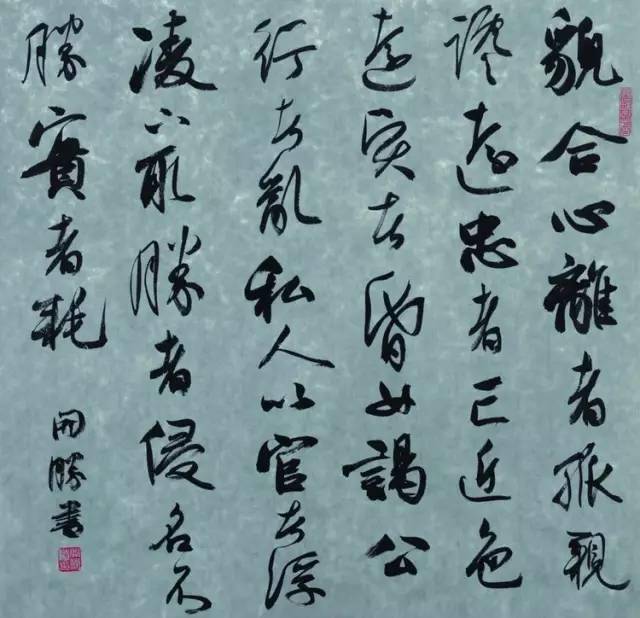 貌合心離者孤親
讒遠忠者亡近色
遠賢者昏女謁公
行者亂私人以官者浮
凌下取勝者侵名不
勝實者耗
開勝書